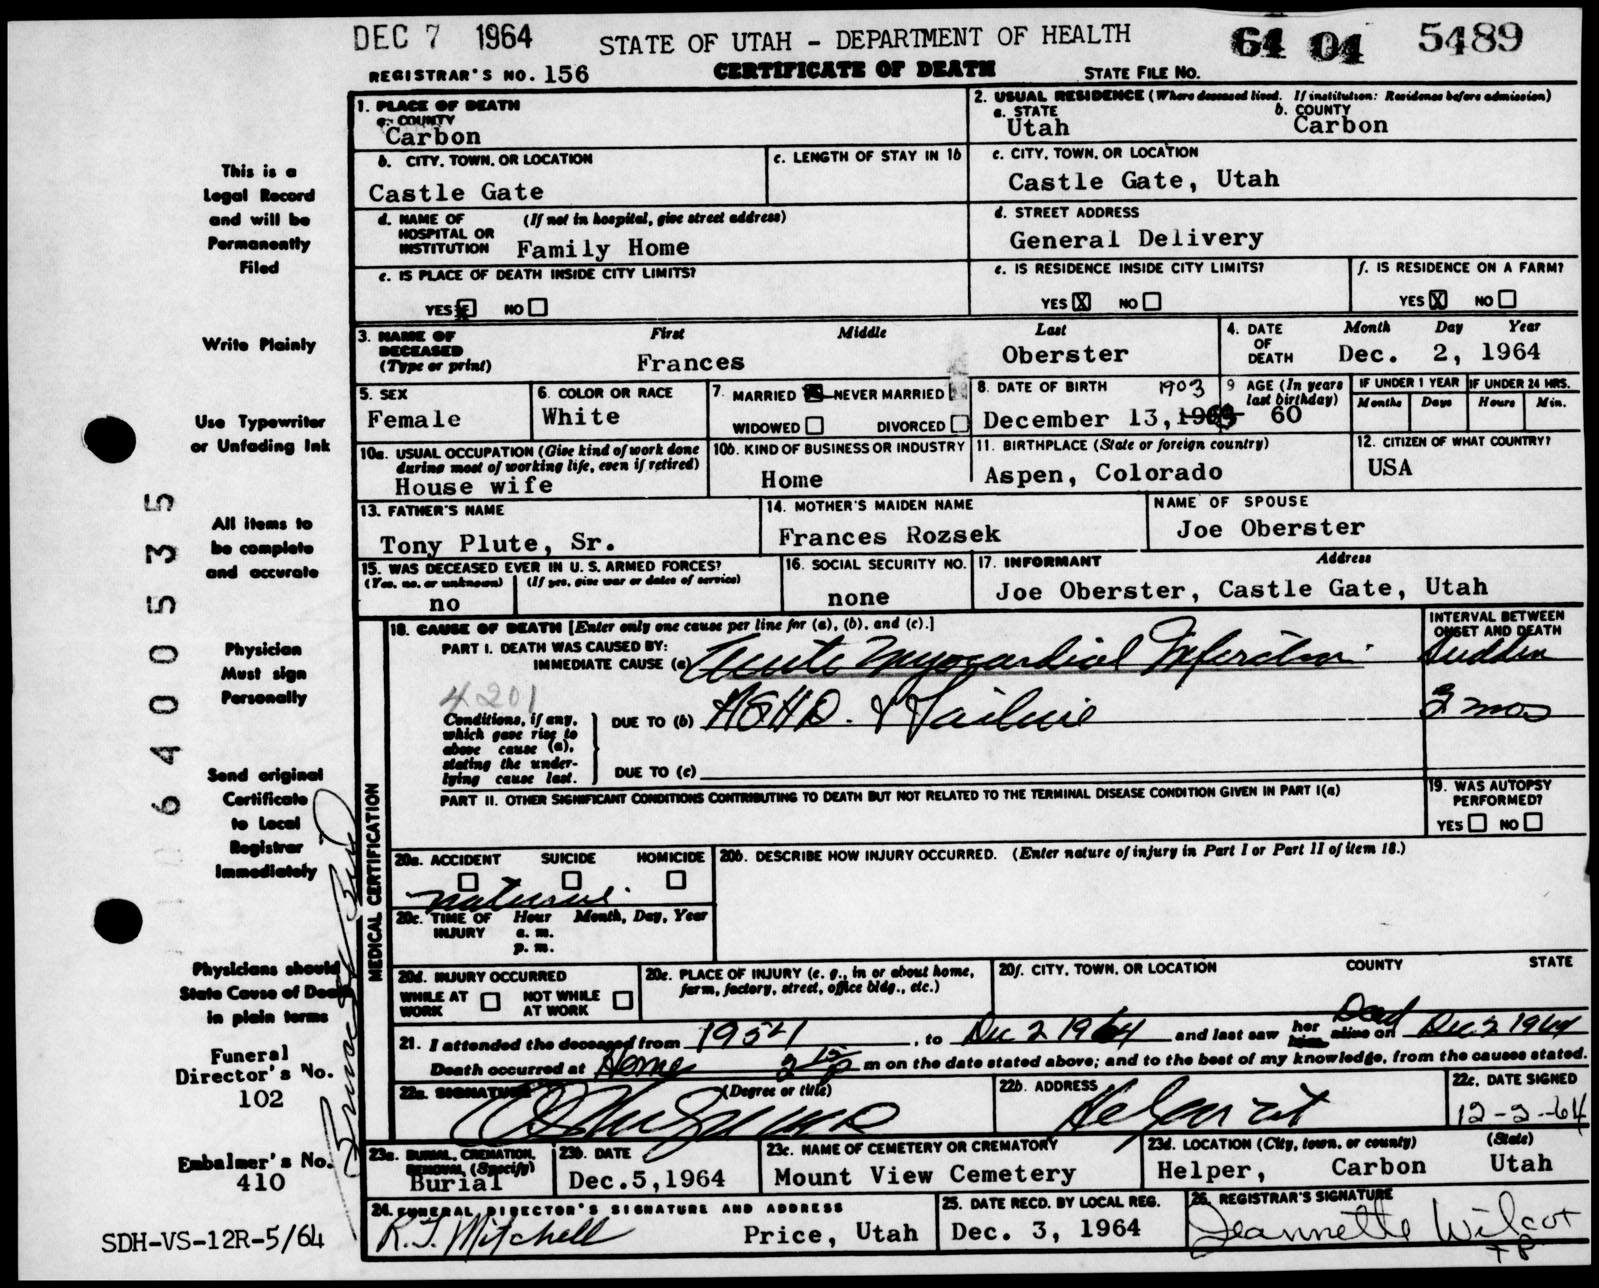 DEC 7 1964
STATE OF UTAH - DEPARTMENT OF HEALTH
64 04 5489
REGISTRAR'S NO. 156
CERTIFICATE OF DEATH
STATE FILE NO.
This is a
Legal Record
and will be
Permanently
Filed
Write Plainly
Use Typewriter
or Unfading Ink
All items to
be complete
and accurate
Physician
Must sign
Personally
Send original
Certificate
to Local
Registrar
Immediately
Physicians should
State Cause of Death
in plain terms
Funeral
Director's No.
102
Embalmer's No.
410
SDH-VS-12R-5/64
64005355
1. PLACE OF DEATH
a. COUNTY
Carbon
2. USUAL RESIDENCE (Where deceased lived. If institution: Residence before admission)
a. STATE
Utah
b. COUNTY
Carbon
b. CITY, TOWN, OR LOCATION
Castle Gate
c. LENGTH OF STAY IN 1b
c. CITY, TOWN, OR LOCATION
Castle Gate, Utah
d. NAME OF HOSPITAL OR INSTITUTION
(If not in hospital, give street address)
Family Home
d. STREET ADDRESS
General Delivery
e. IS PLACE OF DEATH INSIDE CITY LIMITS?
YES X NO
e. IS RESIDENCE INSIDE CITY LIMITS?
YES X NO
f. IS RESIDENCE ON A FARM?
YES X NO
3. NAME OF DECEASED
(Type or print)
First Middle Last
Frances Oberster
4. DATE OF DEATH
Month Day Year
Dec. 2, 1964
5. SEX
Female
6. COLOR OR RACE
White
7. MARRIED NEVER MARRIED
WIDOWED DIVORCED
8. DATE OF BIRTH
1903
December 13,
9 AGE (In years last birthday)
60
IF UNDER 1 YEAR
Months Days
IF UNDER 24 HRS.
Hours Min.
10a. USUAL OCCUPATION (Give kind of work done during most of working life, even if retired)
House wife
10b. KIND OF BUSINESS OR INDUSTRY
Home
11. BIRTHPLACE (State or foreign country)
Aspen, Colorado
12. CITIZEN OF WHAT COUNTRY?
USA
13. FATHER'S NAME
Tony Plute, Sr.
14. MOTHER'S MAIDEN NAME
Frances Rozsek
NAME OF SPOUSE
Joe Oberster
15. WAS DECEASED EVER IN U. S. ARMED FORCES?
(Yes, no, or unknown) (If yes, give war or dates of service)
no
16. SOCIAL SECURITY NO.
none
17. INFORMANT Address
Joe Oberster, Castle Gate, Utah
MEDICAL CERTIFICATION
18. CAUSE OF DEATH [Enter only one cause per line for (a), (b), and (c).]
INTERVAL BETWEEN ONSET AND DEATH
PART I. DEATH WAS CAUSED BY:
IMMEDIATE CAUSE (a) Acute Myocardial Infarction
Sudden
4201
Conditions, if any, which gave rise to above cause (a), stating the underlying cause last.
DUE TO (b) ASHD. & Failure
3 mos
DUE TO (c)
PART II. OTHER SIGNIFICANT CONDITIONS CONTRIBUTING TO DEATH BUT NOT RELATED TO THE TERMINAL DISEASE CONDITION GIVEN IN PART I(a)
19. WAS AUTOPSY PERFORMED?
YES NO
20a. ACCIDENT SUICIDE HOMICIDE
natural
20b. DESCRIBE HOW INJURY OCCURRED. (Enter nature of injury in Part I or Part II of item 18.)
20c. TIME OF INJURY
Hour Month, Day, Year
a. m.
p. m.
20d. INJURY OCCURRED
WHILE AT WORK NOT WHILE AT WORK
20e. PLACE OF INJURY (e. g., in or about home, farm, factory, street, office bldg., etc.)
20f. CITY, TOWN, OR LOCATION COUNTY STATE
21. I attended the deceased from 1954, to Dec 2 1964 and last saw her Dead alive on Dec. 2 1964
Death occurred at Home 2 15 p m on the date stated above; and to the best of my knowledge, from the causes stated.
22a. SIGNATURE (Degree or title)
22b. ADDRESS
22c. DATE SIGNED
12-2-64
23a. BURIAL, CREMATION, REMOVAL (Specify)
Burial
23b. DATE
Dec.5,1964
23c. NAME OF CEMETERY OR CREMATORY
Mount View Cemetery
23d. LOCATION (City, town, or county) (State)
Helper, Carbon Utah
24. FUNERAL DIRECTOR'S SIGNATURE AND ADDRESS
R.J. Mitchell Price, Utah
25. DATE RECD. BY LOCAL REG.
Dec. 3, 1964
26. REGISTRAR'S SIGNATURE
Jeannette Wilcox